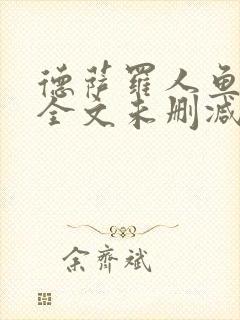 德萨罗人鱼
全文未删减
余齐斌